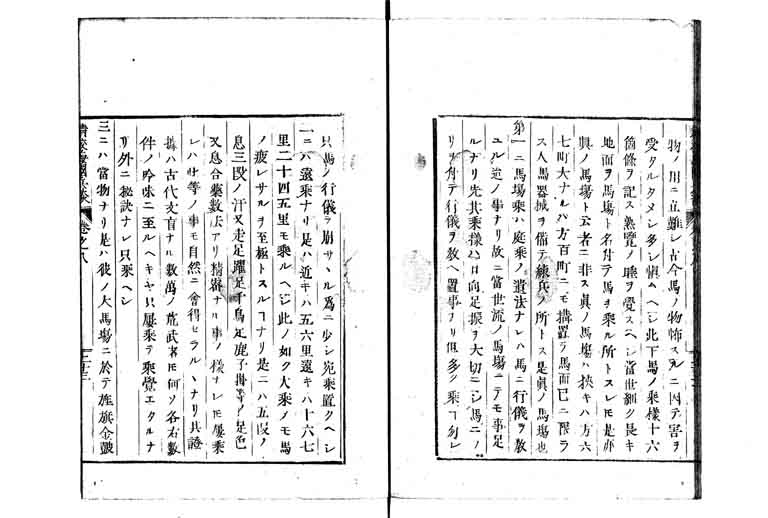 物ノ用ニ立難シ古今馬ノ物怖スルニ因テ害ヲ
受タルタメシ多シ慎ムヘシ此下馬ノ乗様十六
箇條ヲ記ス熟覧ノ睡ヲ覚スヘシ當世細ク長キ
地面ヲ馬場ト名付テ馬ヲ乗ル所トスレ𪜈是亦
真ノ馬場ト云者ニ非ス真ノ馬場ハ挾キハ方六
七町大ナルハ方百町ニモ搆置テ馬而已ニ限ラ
ス人馬器械ヲ備テ練兵ノ所トス是真ノ馬場也
第一ニ馬場乗ハ庭乗ノ遺法ナレハ馬ニ行儀ヲ教
ユル迠ノ事ナリ故ニ當世流ノ馬場ニテモ事足
ルナリ先其乗様ハ口向足振ヲ大切ニシ馬ニノ
リヲ付テ行儀ヲ教ヘ置事ナリ但多ク乗ヿ勿レ
只馬ノ行儀ヲ崩サヽル為ニ少シ宛乗置クヘシ
二ニハ遠乗ナリ是ハ近キハ五六里遠キハ十六七
里二十四五里モ乗ルヘシ此ノ如ク大乗ノモ馬
ノ疲レサルヲ至極トスルヿナリ是ニハ五段ノ
息三段ノ汗又走足躍足千鳥足鹿子掛等ノ足色
又息合藥数法アリ精審ナル事ノ様ナレ𪜈屡乗
レハ此等ノ事モ自然ニ會得セラルヽナリ其證
據ハ古代文盲ナル数萬ノ荒武者𪜈何ソ各右数
件ノ吟味ニ至ルヘキヤ只屡乗テ乗覺エタルナ
リ外ニ秘訣ナシ只乗ヘシ
三ニハ當物ナリ是ハ彼ノ大馬場ニ於テ旌旗金皷
卷之八